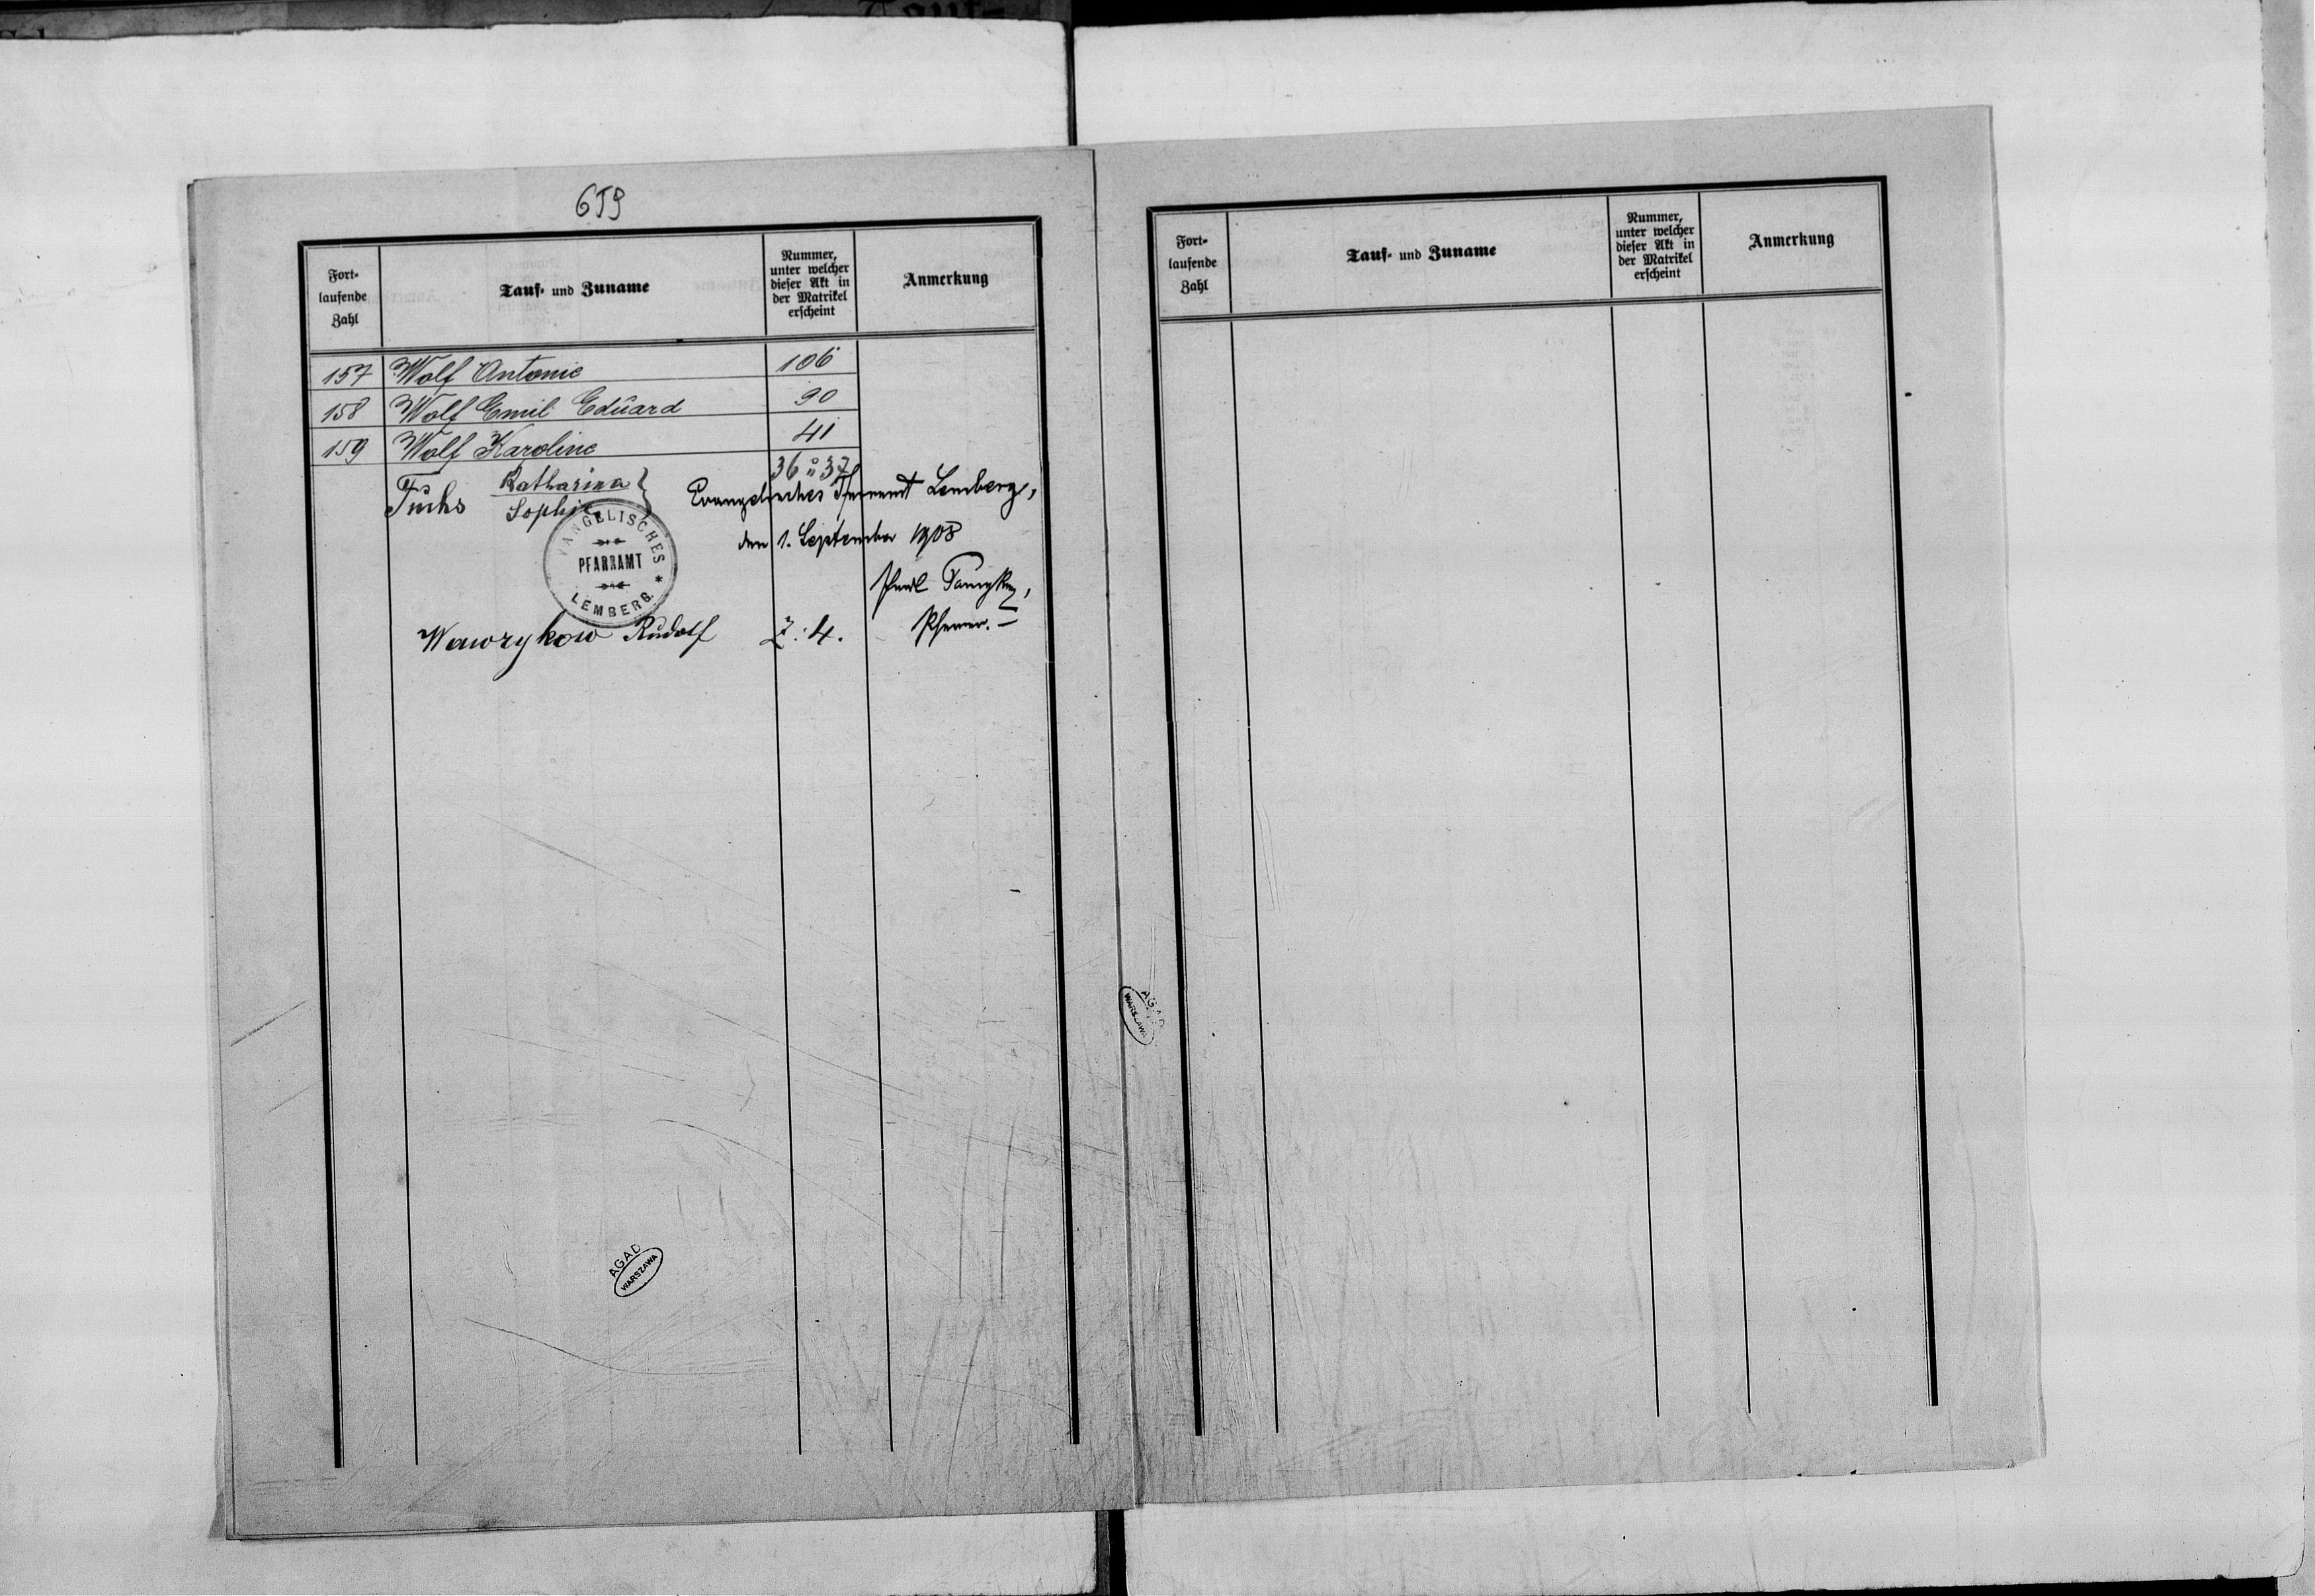 Tauf-
659
Fort-
laufende
Zahl
Tauf- und Zuname
Nummer,
unter welcher
dieser Akt in
der Matrikel
erscheint
Anmerkung
157 Wolf Antonie 106
158 Wolf Emil Eduard 90
159 Wolf Karoline 41
Fuchs Katharina 36 u 37
Sophie
Evangelisches Pfarramt Lemberg,
den 1. September 1908
Pfarrer.
EVANGELISCHES
PFARRAMT
LEMBERG.
Wawrykow Rudolf Z: 4.
AGAD
WARSZAWA
Fort-
laufende
Zahl
Tauf- und Zuname
Nummer,
unter welcher
dieser Akt in
der Matrikel
erscheint
Anmerkung
AGAD
WARSZAWA